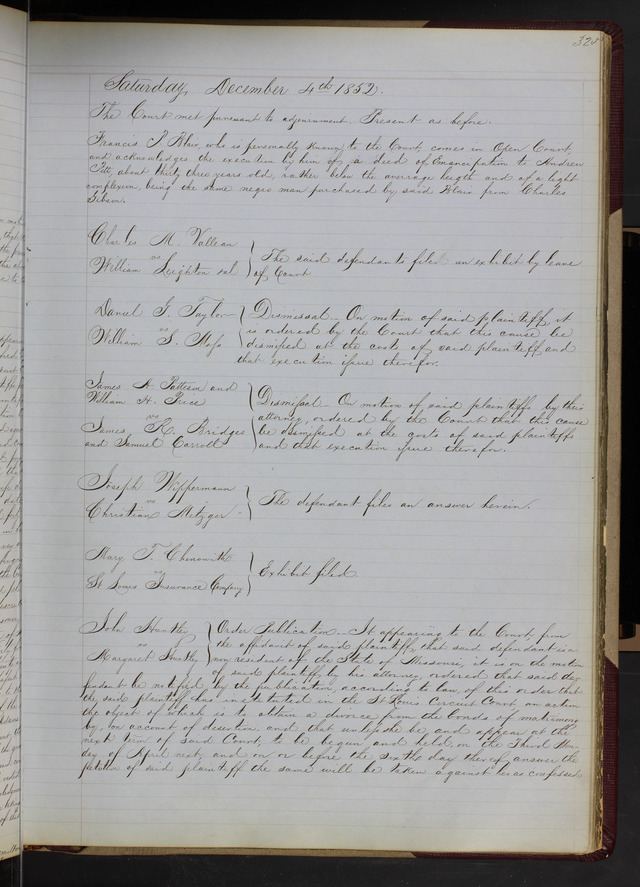 Saturday, December 4th 1852.
The Court met pursuant to adjournment. Present as before.
Francis P. Blair, who is personally known to the Court, comes in Open Court,
and acknowledges the execution by him of a deed of Emancipation to Andrew
about thirty three years old, rather below the average heigth and of a light
complexion, being the same negro man purchased by said Blair from Charles
Gibson.
Charles M. Valleau
vs
William Leighton
The said defendant files an exhibit by leave
of Court
Daniel G. Taylor
vs
William S.
Dismissal — On motion of said plaintiff, it
is ordered by the Court that this cause be
dismissed at the costs of said plaintiff and
that execution issue therefor.
James H. Patterson and
William H. Price
vs
James R. Bridges
and Samuel
Dismissal — On motion of said plaintiffs by their
attorney, ordered by the Court that this cause
be dismissed at the costs of said plaintiffs
and that execution issue therefor.
Joseph Wippermann
vs
Christian Metzger
The defendant files an answer herein.
Mary T. Chenowith
vs
St Louis Insurance Company
Exhibit filed
John Huntley
vs
Margaret Huntley
Order Publication — It appearing to the Court, from
the affidavit of said plaintiff, that said defendant is a
non resident of the State of Missouri, it is on the motion
of said plaintiff by his attorney ordered that said de-
fendant be notified by the publication according to law of this order that
the said plaintiff has instituted in the St Louis Circuit Court an action
the object of which is to obtain a divorce from the bonds of matrimony
by on account of desertion, and that unless she be and appear at the
next term of said Court, to be begun and held, on the Third Mon-
day of April next, and on or before the sixth day thereof answer the
petition of said plaintiff the same will be taken against her as confessed